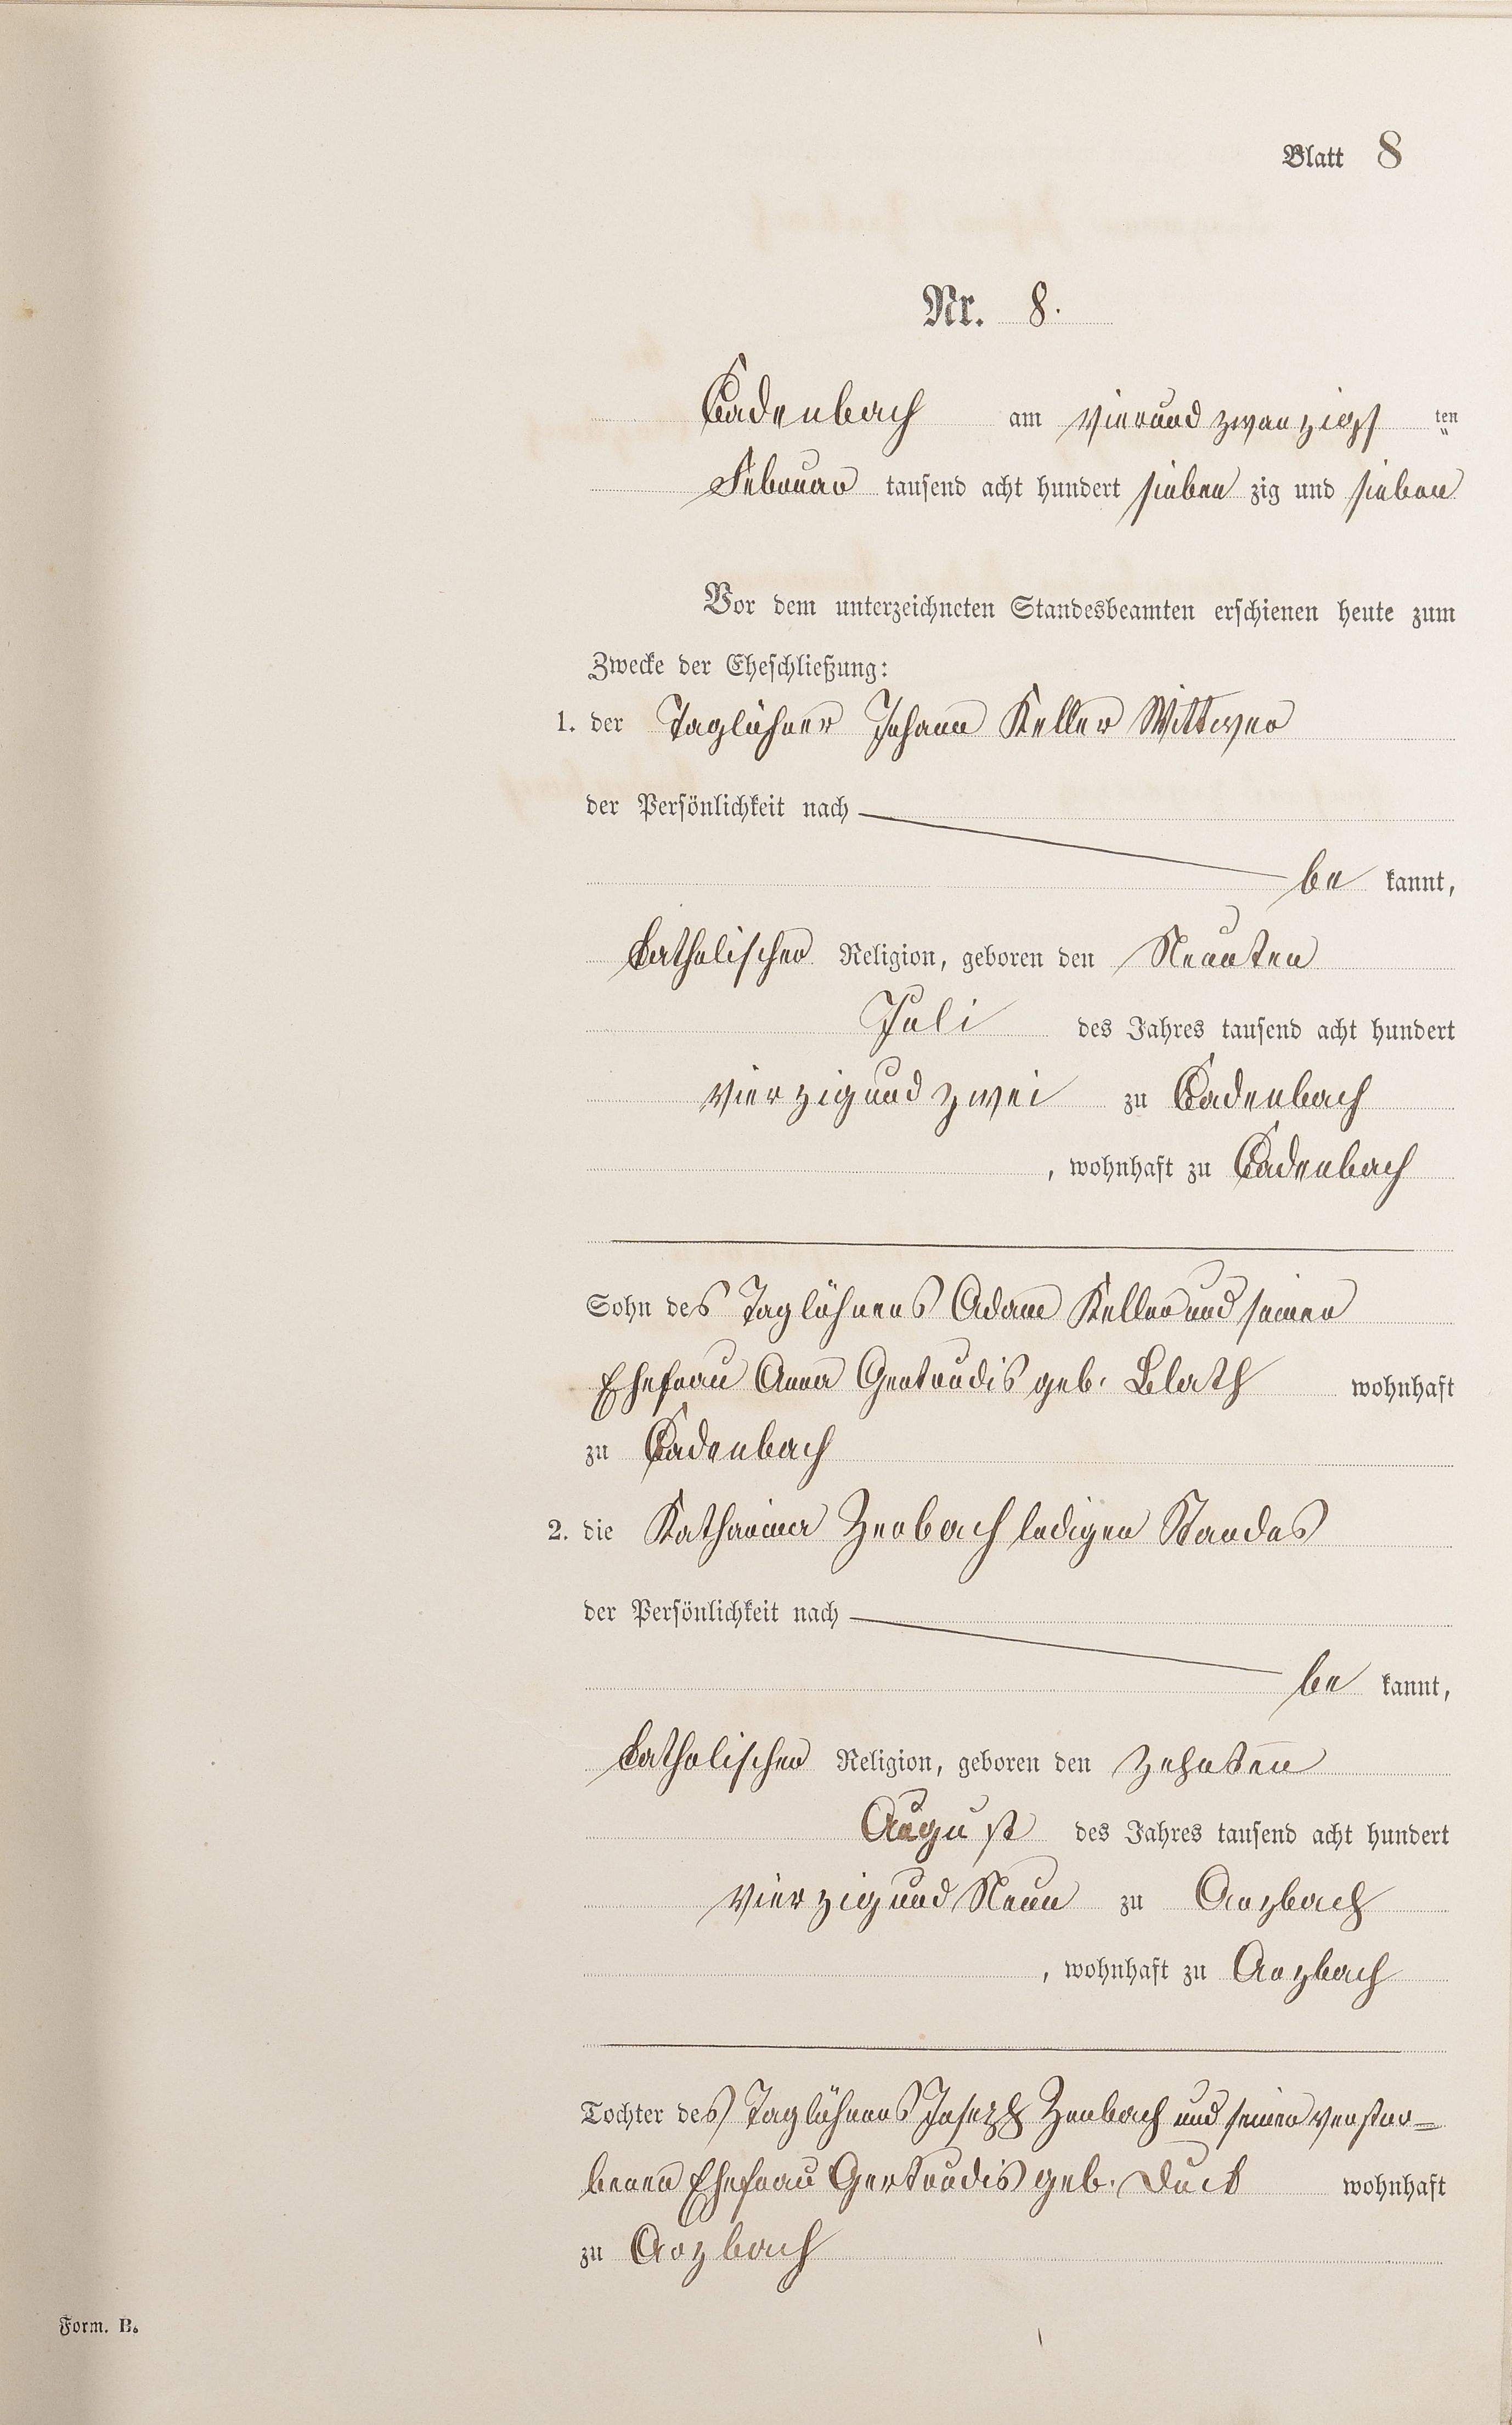 Blatt 8
Nr. 8.
Cadenbach am vierundzwanzigst ten
Februar tausend acht hundert sieben zig und sieben
Vor dem unterzeichneten Standesbeamten erschienen heute zum
Zwecke der Eheschließung:
1. der Taglöhner Johann Keller Wittwer
der Persönlichkeit nach
be kannt,
katholischer Religion, geboren den Neunten
Juli des Jahres tausend acht hundert
vierzig und zwei zu Cadenbach
, wohnhaft zu Cadenbach
Sohn des Taglöhners Adam Keller und seiner
Ehefrau Anna Gertrudis geb. Blath wohnhaft
zu Cadenbach
2. die Katharina Zerbach ledigen Standes
der Persönlichkeit nach
be kannt,
katholischer Religion, geboren den zehnten
August des Jahres tausend acht hundert
vierzig und Neun zu Arzbach
, wohnhaft zu Arzbach
Tochter des Taglöhners Joseph Zerbach und seiner verstor-
benen Ehefrau Gertrudis geb. wohnhaft
zu Arzbach
Form. B.